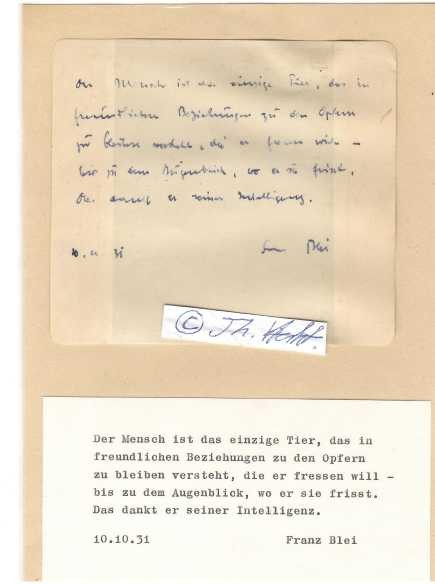 Der Mensch ist das einzige Tier, das in
freundlichen Beziehungen zu den Opfern
zu bleiben versteht, die er fressen will –
bis zu dem Augenblick, wo er sie frisst.
Das dankt er seiner Intelligenz.
10. 31 Franz Blei
© Th.
Der Mensch ist das einzige Tier, das in
freundlichen Beziehungen zu den Opfern
zu bleiben versteht, die er fressen will –
bis zu dem Augenblick, wo er sie frisst.
Das dankt er seiner Intelligenz.
10.10.31 Franz Blei